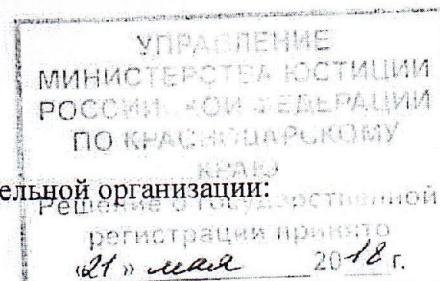 УПРАВЛЕНИЕ
МИНИСТЕРСТВА ЮСТИЦИИ
РОССИЙСКОЙ ФЕДЕРАЦИИ
ПО КРАСНОДАРСКОМУ
КРАЮ
ельной организации:
Решение о государственной
регистрации принято
«21» мая 2018 г.